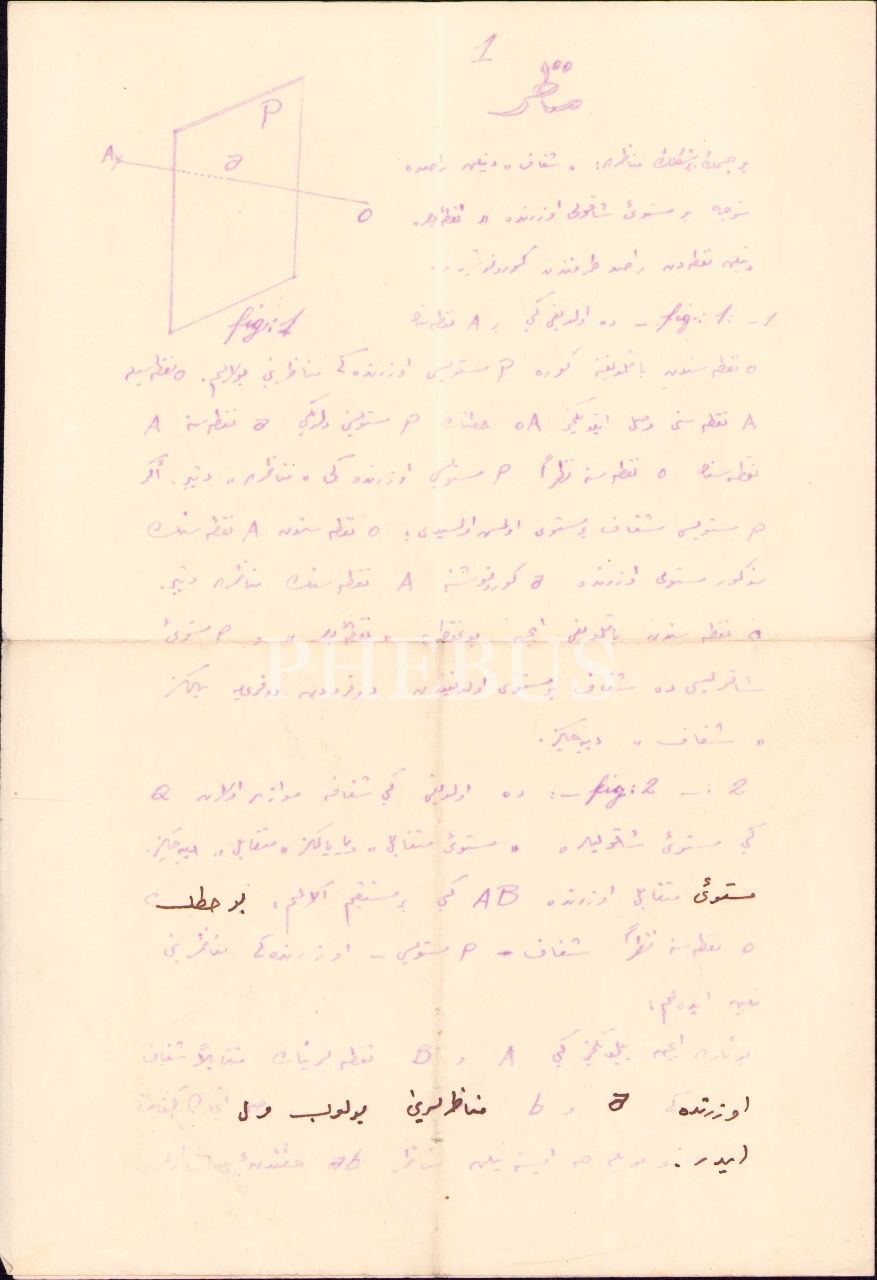 1
مناظر
P
A
a
O
fig: 1
بر جسمك و شكلك مناظرى: „ شفاف „ دينلن راصده
متوجه بر مستوئ شاقولى اوزرنده „ نقطهٔ بصر „
دينلن نقطه‌دن راصد طرفندن كورونوشيدر.
1 - fig: 1 - ده اولديغى كبى بر A نقطه‌سنه
o نقطه‌سندن باقلديغنه كوره P مستويسى اوزرنده‌كى مناظرينى بولالم. o نقطه‌سيله
A نقطه‌سنى وصل ايتديكمز oA خطنك P مستويسنى دلديكى a نقطه‌سنه A
نقطه‌سنك o نقطه‌سنه نظراً P مستويسى اوزرنده كى „ مناظرى „ دينير. اكر
P مستويسى شفاف بر مستوى اولمش اولسيدى؛ o نقطه‌سندن A نقطه‌سنك
مذكور مستوى اوزرنده a كورونوشنه A نقطه‌سنك مناظرى دينير.
o نقطه‌سندن باقلديغى ايچون بو نقطه‌يه „ نقطهٔ بصر „ و P مستوئ
شاقوليسى ده شفاف بر مستوى اولديغندن دوغرودن دوغرى‌يه يالكز
„ شفاف „ دييه‌جكز.
2 - : fig: 2 - : ده اولديغى كبى شفافه موازى اولان Q
كبى مستوئ شاقولى‌يه „ مستوئ متقابل „ ويا يالكز „ متقابل „ دييه‌جكز.
مستوئ متقابل اوزرنده AB كبى بر مستقيم آلالم. بو خطك
o نقطه‌سنه نظراً شفاف - P مستويسى - اوزرنده‌كى مناظرينى
تعيين ايده‌لم:
بونك ايچون بيلديكمز كبى A و B نقطه‌لرينك متقابلاً شفاف
اوزرنده‌كى a و b مناظرلرينى بولوب وصل
ايدر. مناظر ab
PHEBUS